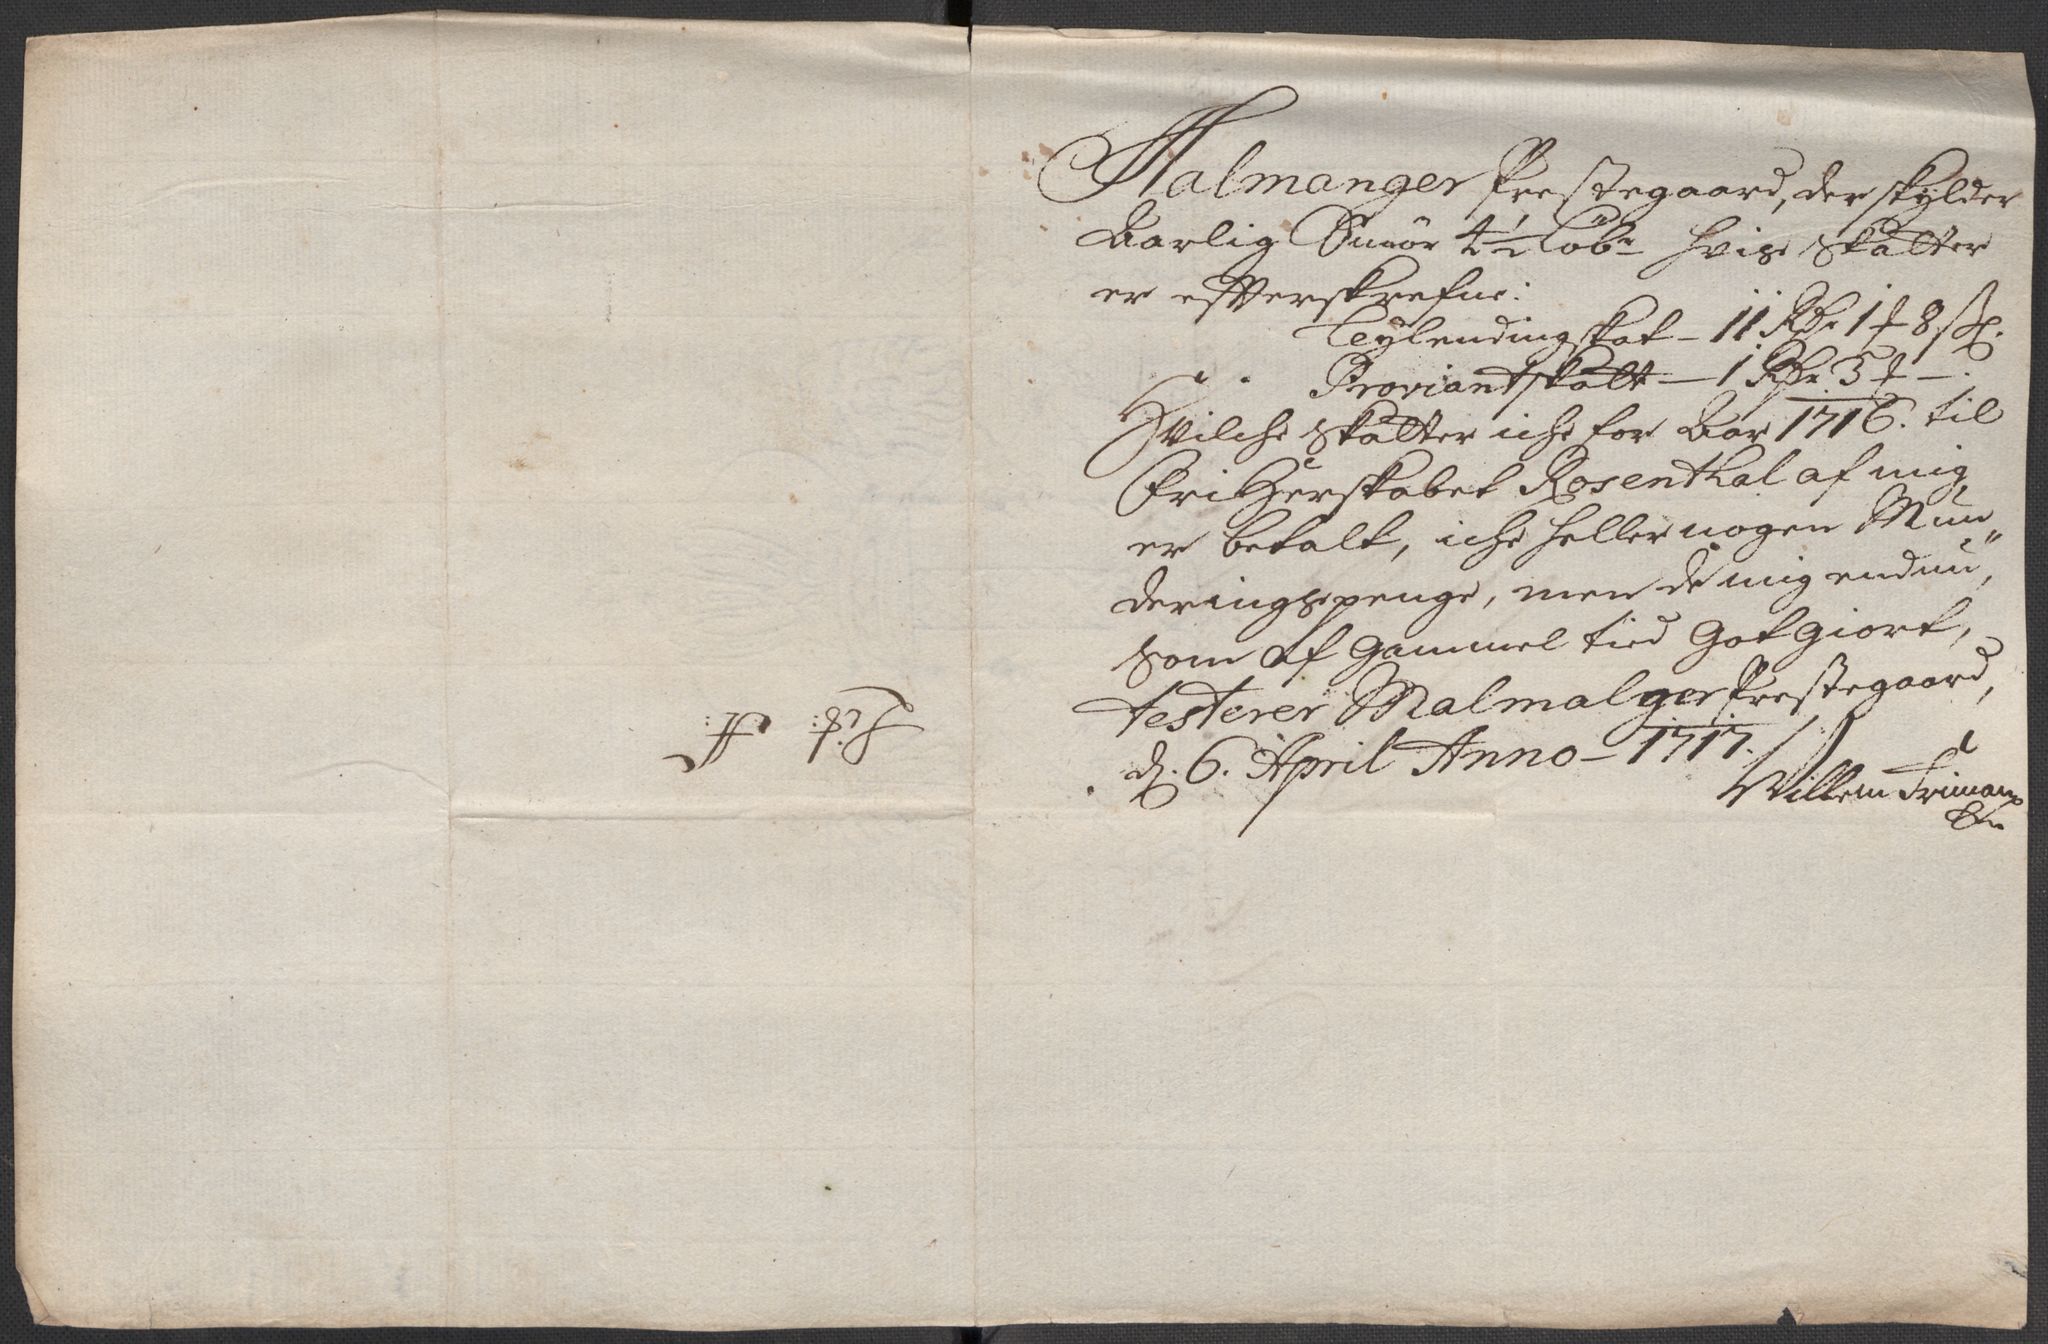 Malmanger Prestegaard, der skylder
Aarlig Smør 4½ Løb. hvis Skatter
er effterskrefne:
Leylendingskat – 11 Rdr 1 ⚹ 8 sk.
Proviantskatt – 1 Rdr 3 ⚹ –.
Hvilche Skatter iche for Aar 1716. til
FriHerskabet Rosenthal af mig
er betalt, iche heller nogen Mun„
deringspenge, men de mig endnu,
som af Gammel tied Got giort,
testerer Malmalger Prestegaard,
d. 6. April Anno – 1717.
Willem Frimann